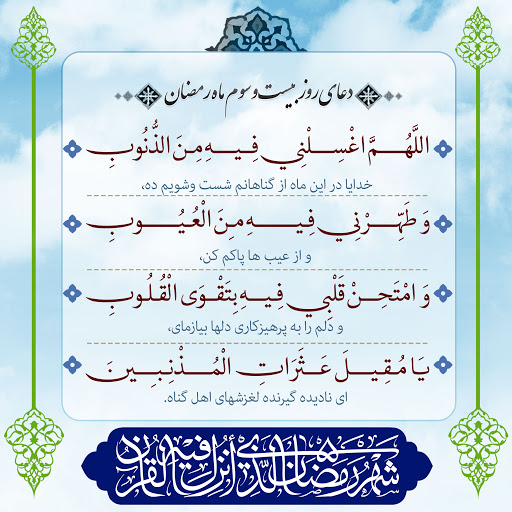 دعای روز بیست و سوم ماه رمضان
اللَّهُمَّ اغْسِلْنِي فِيهِ مِنَ الذُّنُوبِ
خدایا در این ماه از گناهانم شست وشویم ده،
وَ طَهِّرْنِي فِيهِ مِنَ الْعُيُوبِ
و از عیب ها پاکم کن،
وَ امْتَحِنْ قَلْبِي فِيهِ بِتَقْوَى الْقُلُوبِ
و دلم را به پرهیزکاری دلها بیازمای،
يَا مُقِيلَ عَثَرَاتِ الْمُذْنِبِينَ
ای نادیده گیرنده لغزشهای اهل گناه.
شَهْرُ رَمَضَانَ الَّذِي أُنْزِلَ فِيهِ الْقُرْآنُ